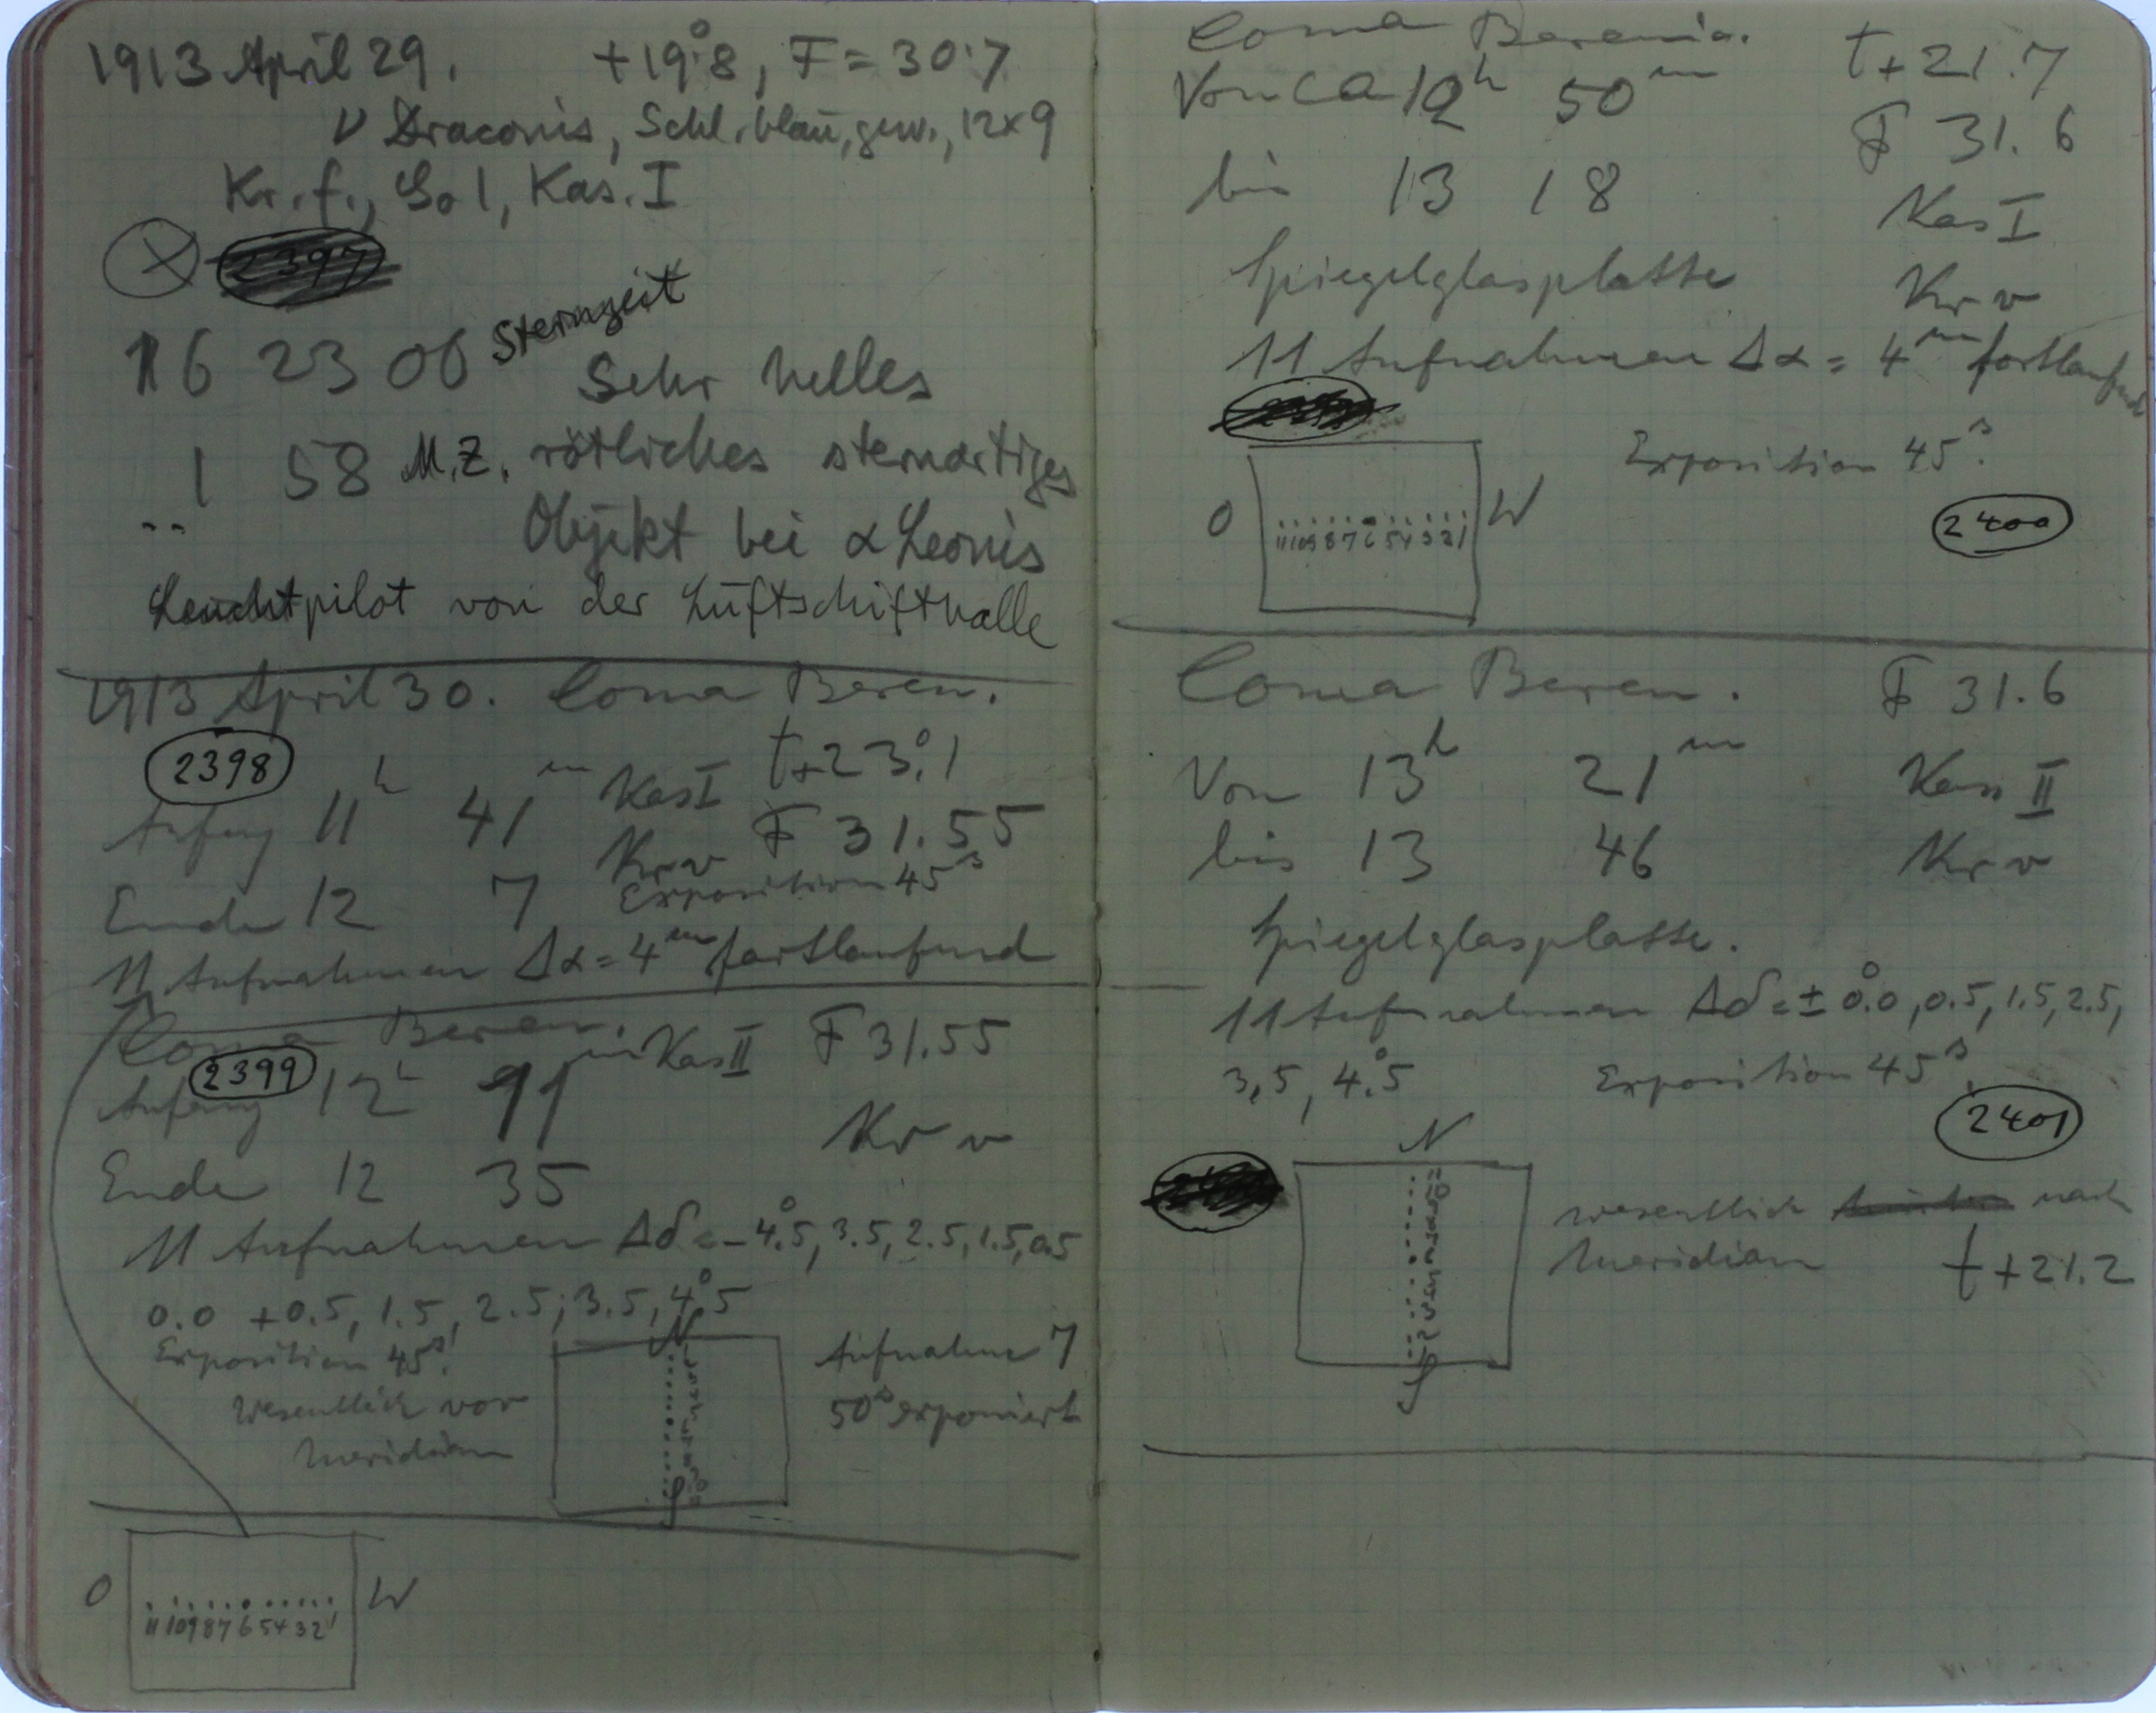 1913 April 29. +19°.8, F = 30.7
ν Draconis, Schl. blau, gew., 12×9
Kr. f., So 1, Kas. I
2397
16 23 06 Sternzeit
Sehr helles
1 58 M.Z. rötliches sternartiges
Objekt bei α Leonis
Leuchtpilot von der Luftschiffhalle
1913 April 30. Coma Beren.
2398 t+23°.1
Anfang 11h 41m Kas I
Kr v F 31.55
Ende 12 7 Exposition 45s
11 Aufnahmen Δα = 4m fortlaufend
Coma Beren. Kas II F 31.55
2399
Anfang 12h 11m Kr v
Ende 12 35
11 Aufnahmen Δδ = -4°.5, 3.5, 2.5, 1.5, 0.5
0.0 +0.5, 1.5, 2.5, 3.5, 4°.5
Exposition 45s!
N
Aufnahme 7
Wesentlich vor 50s exponiert
Meridian
S
O W
11 10 9 8 7 6 5 4 3 2 1
Coma Berenic. t+21.7
Von ca 12h 50m F 31.6
bis 13 18 Kas I
Spiegelglasplatte Kr v
11 Aufnahmen Δα = 4m fortlaufend
Exposition 45s.
O W
11 10 9 8 7 6 5 4 3 2 1
2400
Coma Beren. F 31.6
Von 13h 21m Kass II
bis 13 46 Kr v
Spiegelglasplatte.
11 Aufnahmen Δδ = ± 0°.0, 0.5, 1.5, 2.5,
3,5, 4°.5 Exposition 45s.
2401
N
wesentlich nach
Meridian t+21.2
S